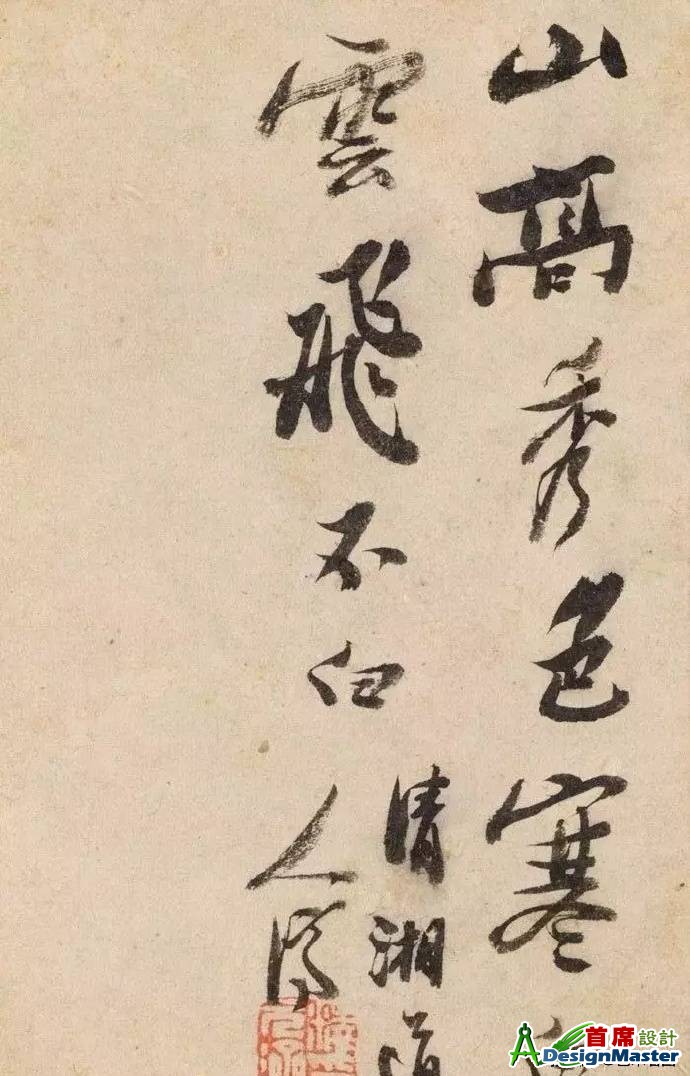 山髙秀色寒
雲飛不白
清湘道
人濟
首席設計
ADesignMaster